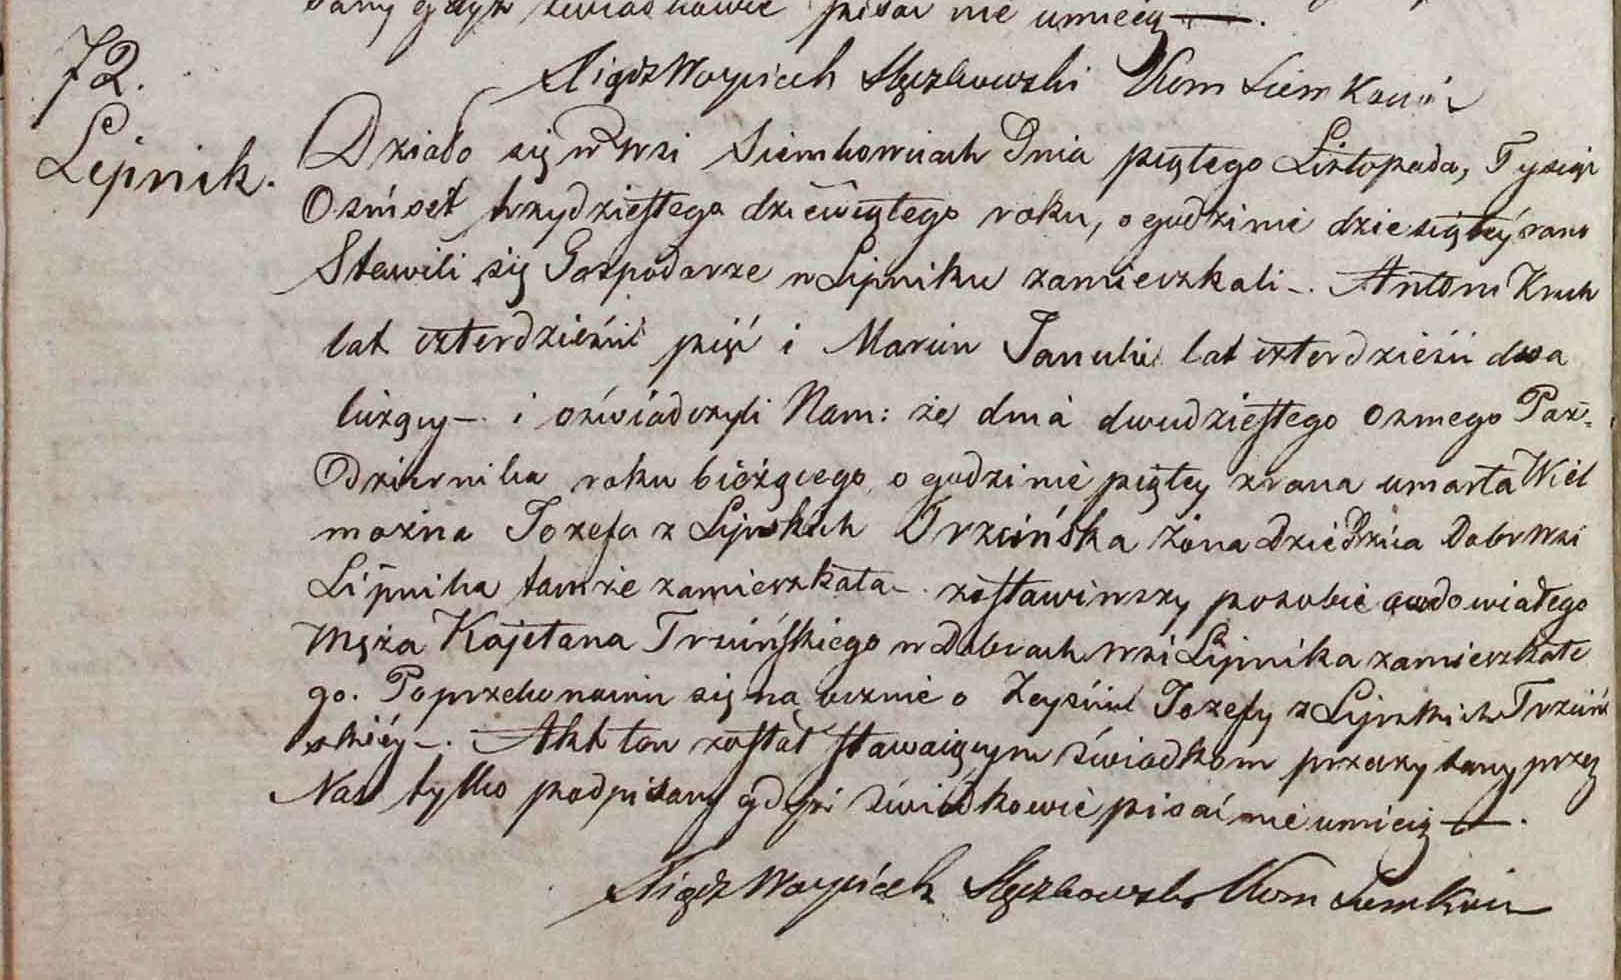 pisać nie umieią —.
Xiądz Woyciech Kom Siemkowic
72.
Lipnik.
Działo się w wsi Siemkowicach Dnia piątego Listopada, Tysiąc
Osmset trzydziestego dziewiątego roku, o godzinie dziesiątéy rano
Stawili się Gospodarze w Lipniku zamieszkali –. Antoni Kruk
lat czterdzieści pięć i Marcin Janulik lat czterdzieści dwa
liczący –. i oświadczyli Nam: że dnia dwudziestego osmego Paź=
dziernika roku bieżącego o godzinie piątey zrana umarła Wiel
można Jozefa z Lipskich Trzcińska żona Dziedzica Dobr wsi
Lipnika tamże zamieszkała –. zostawiwszy po sobie owdowiałego
Męża Kajetana Trzcińskiego w Dobrach wsi Lipnika zamieszkałe
go. Poprzekonaniu się na ocznie o Zeyściu Jozefy z Lipskich Trzciń
skiéy –. Akt ten został stawaiącym świadkom przeczytany przez
Nas tylko podpisany gdyż świadkowie pisać nie umieią —.
Xiądz Woyciech Kom Siemkowic